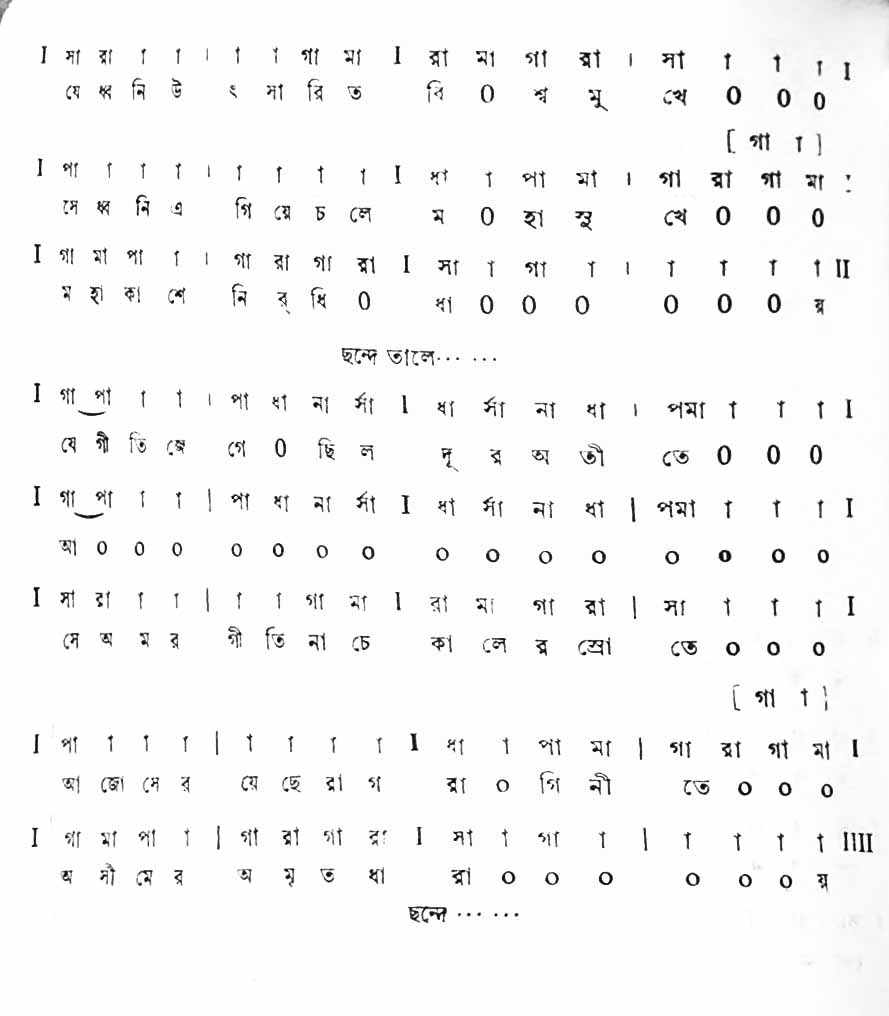 I সা রা া া । া া গা মা I রা মা গা রা । সা া া া I
যে ধ্ব নি উ ৎ সা রি ত বি 0 শ্ব মু খে 0 0 0
[ গা া ]
I পা া া া । া া া া I ধা া পা মা । গা রা গা মা :
সে ধ্ব নি এ গি য়ে চ লে ম 0 হা সু খে 0 0 0
I গা মা পা া । গা রা গা রা I সা া গা া । া া া া II
ম হা কা শে নি র্ ধি 0 ধা 0 0 0 0 0 0 য়
ছন্দে তালে... ...
I গা পা া া । পা ধা না র্সা I ধা র্সা না ধা । পমা া া া I
যে গী তি জে গে 0 ছি ল দূ র অ তী তে 0 0 0
I গা পা া া | পা ধা না র্সা I ধা র্সা না ধা | পমা া া া I
আ 0 0 0 0 0 0 0 0 0 0 0 0 0 0 0
I সা রা া া | া া গা মা I রা মা গা রা | সা া া া I
সে অ ম র গী তি না চে কা লে র স্রো তে 0 0 0
[ গা া ]
I পা া া া | া া া া I ধা া পা মা | গা রা গা মা I
আ জো সে র য়ে ছে রা গ রা 0 গি নী তে 0 0 0
I গা মা পা া | গা রা গা রা I সা া গা া | া া া া IIII
অ সী মে র অ মৃ ত ধা রা 0 0 0 0 0 0 য়
ছন্দে ... ...